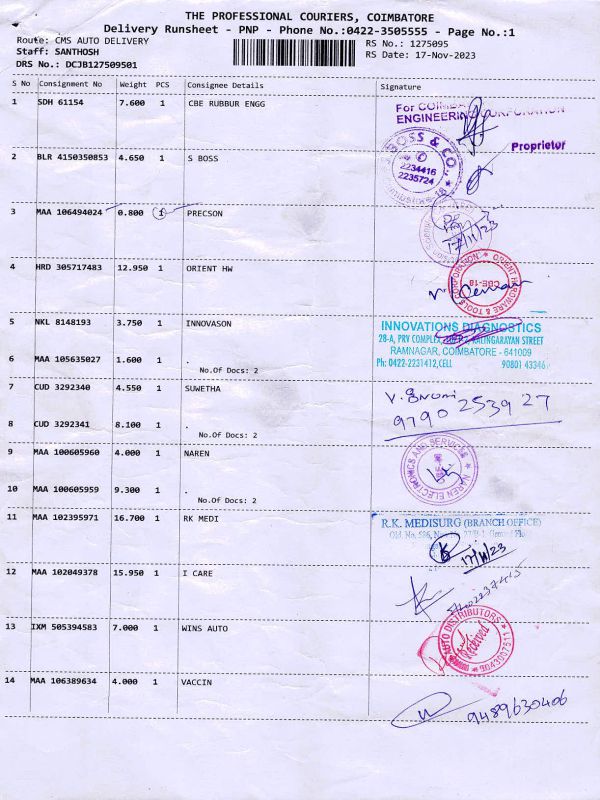 THE PROFESSIONAL COURIERS, COIMBATORE
Delivery Runsheet - PNP - Phone No.:0422-3505555 - Page No.:1
Route: CMS AUTO DELIVERY
RS No.: 1275095
Staff: SANTHOSH
RS Date: 17-Nov-2023
DRS No.: DCJB127509501
S No Consignment No Weight PCS Consignee Details Signature
1 SDH 61154 7.600 1 CBE RUBBUR ENGG
For COIMBA CORPORATION
ENGINEERING
Proprietor
2 BLR 4150350853 4.650 1 S BOSS
BOSS & CO.
2234416
2235724
3 MAA 106494024 0.800 1 PRECSON
17/11/23
4 HRD 305717483 12.950 1 ORIENT HW
ORIENT HARDWARE & TOOLS CORPORATION
CBE-18
5 NKL 8148193 3.750 1 INNOVASON
INNOVATIONS DIAGNOSTICS
28-A, PRV COMPLEX, KALINGARAYAN STREET
RAMNAGAR, COIMBATORE - 641009
Ph: 0422-2231412,CELL 90801 43346
6 MAA 105635027 1.600 1 .
No.Of Docs: 2
7 CUD 3292340 4.550 1 SUWETHA
9790253927
8 CUD 3292341 8.100 1 .
No.Of Docs: 2
9 MAA 100605960 4.000 1 NAREN
NAREN ELECTRONICS AND SERVICES
10 MAA 100605959 9.300 1 .
No.Of Docs: 2
11 MAA 102395971 16.700 1 RK MEDI
R.K. MEDISURG (BRANCH OFFICE)
Old. No. 586,
17/11/23
12 MAA 102049378 15.950 1 I CARE
13 IXM 505394583 7.000 1 WINS AUTO
AUTO DISTRIBUTORS
Received
14 MAA 106389634 4.000 1 VACCIN
9489630406